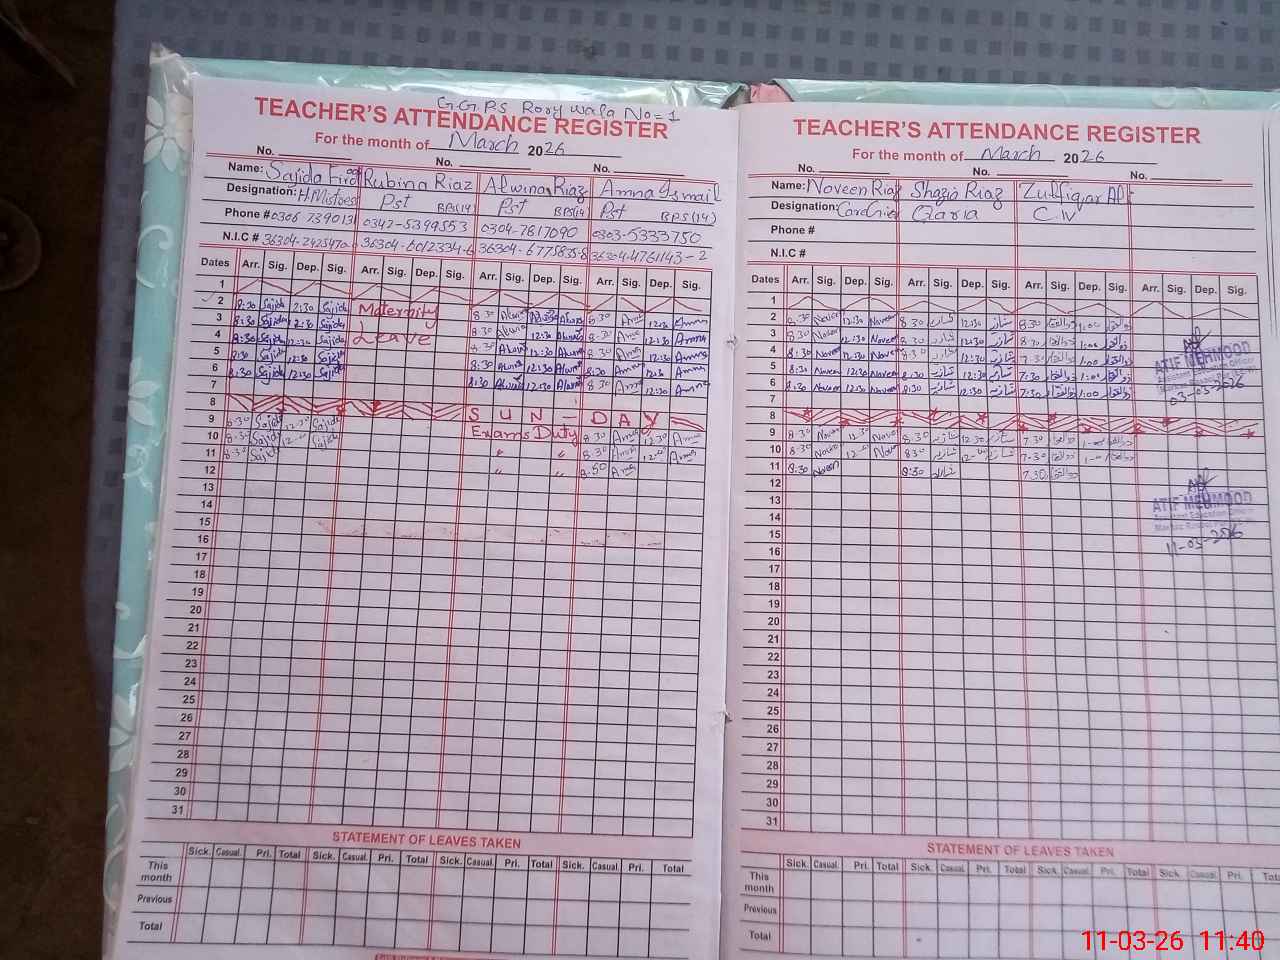 G.G.P.S Rory Wala No = 1
TEACHER'S ATTENDANCE REGISTER
For the month of March 2026
No. No. No.
Name: Sajida Rubina Riaz Alwina Riaz Amna Ismail
Designation: H.Mistres Pst BPS(14) Pst BPS(14) Pst BPS(14)
Phone # 0306 739013 0342-5399553 0304-7617090 0303-5333750
N.I.C #
Dates Arr. Sig. Dep. Sig. Arr. Sig. Dep. Sig. Arr. Sig. Dep. Sig. Arr. Sig. Dep. Sig.
1
2 8:30 Sajida 12:30 Sajida Maternity 8:30 Alwina Alwina 8:30 Amna 12:30 Amna
3 8:30 Sajida 12:30 Sajida Leave 8:30 Alwina 12:30 Alwina 8:30 Amna 12:30 Amna
4 8:30 Sajida 12:30 Sajida 8:30 Alwina 12:30 Alwina 8:30 Amna 12:30 Amna
5 8:30 Sajida 12:30 Sajida 8:30 Alwina 12:30 Alwina 8:30 Amna 12:30 Amna
6 8:30 Sajida 12:30 Sajida 8:30 Alwina 12:30 Alwina 8:30 Amna 12:30 Amna
7
8 SUN-DAY
9 8:30 Sajida 12:30 Sajida Exams Duty 8:30 Amna 12:30 Amna
10 8:30 Sajida 12:00 Sajida " " 8:30 Amna 12:00 Amna
11 8:30 Sajida " " 8:30 Amna
12
13
14
15
16
17
18
19
20
21
22
23
24
25
26
27
28
29
30
31
STATEMENT OF LEAVES TAKEN
Sick. Casual. Pri. Total Sick. Casual. Pri. Total Sick. Casual. Pri. Total Sick. Casual. Pri. Total
This month
Previous
Total
TEACHER'S ATTENDANCE REGISTER
For the month of March 2026
No. No. No.
Name: Noveen Riaz Shazia Riaz Zulfiqar Ali
Designation: Qaria C-IV
Phone #
N.I.C #
Dates Arr. Sig. Dep. Sig. Arr. Sig. Dep. Sig. Arr. Sig. Dep. Sig. Arr. Sig. Dep. Sig.
1
2 8:30 Noveen 12:30 Noveen 8:30 شازیہ 12:30 شازیہ 8:30 1:00
3 8:30 Noveen 12:30 Noveen 8:30 شازیہ 12:30 شازیہ 1:00
4 8:30 Noveen 12:30 Noveen 8:30 شازیہ 12:30 شازیہ 7:30 1:00
5 8:30 Noveen 12:30 Noveen 8:30 شازیہ 12:30 شازیہ 7:30 1:00
6 8:30 Noveen 12:30 Noveen 8:30 شازیہ 12:30 شازیہ 7:30 1:00
7
8
9 8:30 Noveen 12:30 Noveen 8:30 شازیہ 12:30 شازیہ 7:30 1:00
10 8:30 Noveen 12:00 Noveen 8:30 شازیہ 12:00 شازیہ 7:30 1:00
11 8:30 Noveen 8:30 شازیہ 7:30
12
13
14
15
16
17
18
19
20
21
22
23
24
25
26
27
28
29
30
31
ATIF MEHMOOD
Assistant Education Officer
03-03-2026
ATIF MEHMOOD
Assistant Education Officer
11-03-2026
STATEMENT OF LEAVES TAKEN
Sick. Casual. Pri. Total Sick. Casual. Pri. Total Sick. Casual. Pri. Total Sick. Casual. Pri.
This month
Previous
Total
11-03-26 11:40